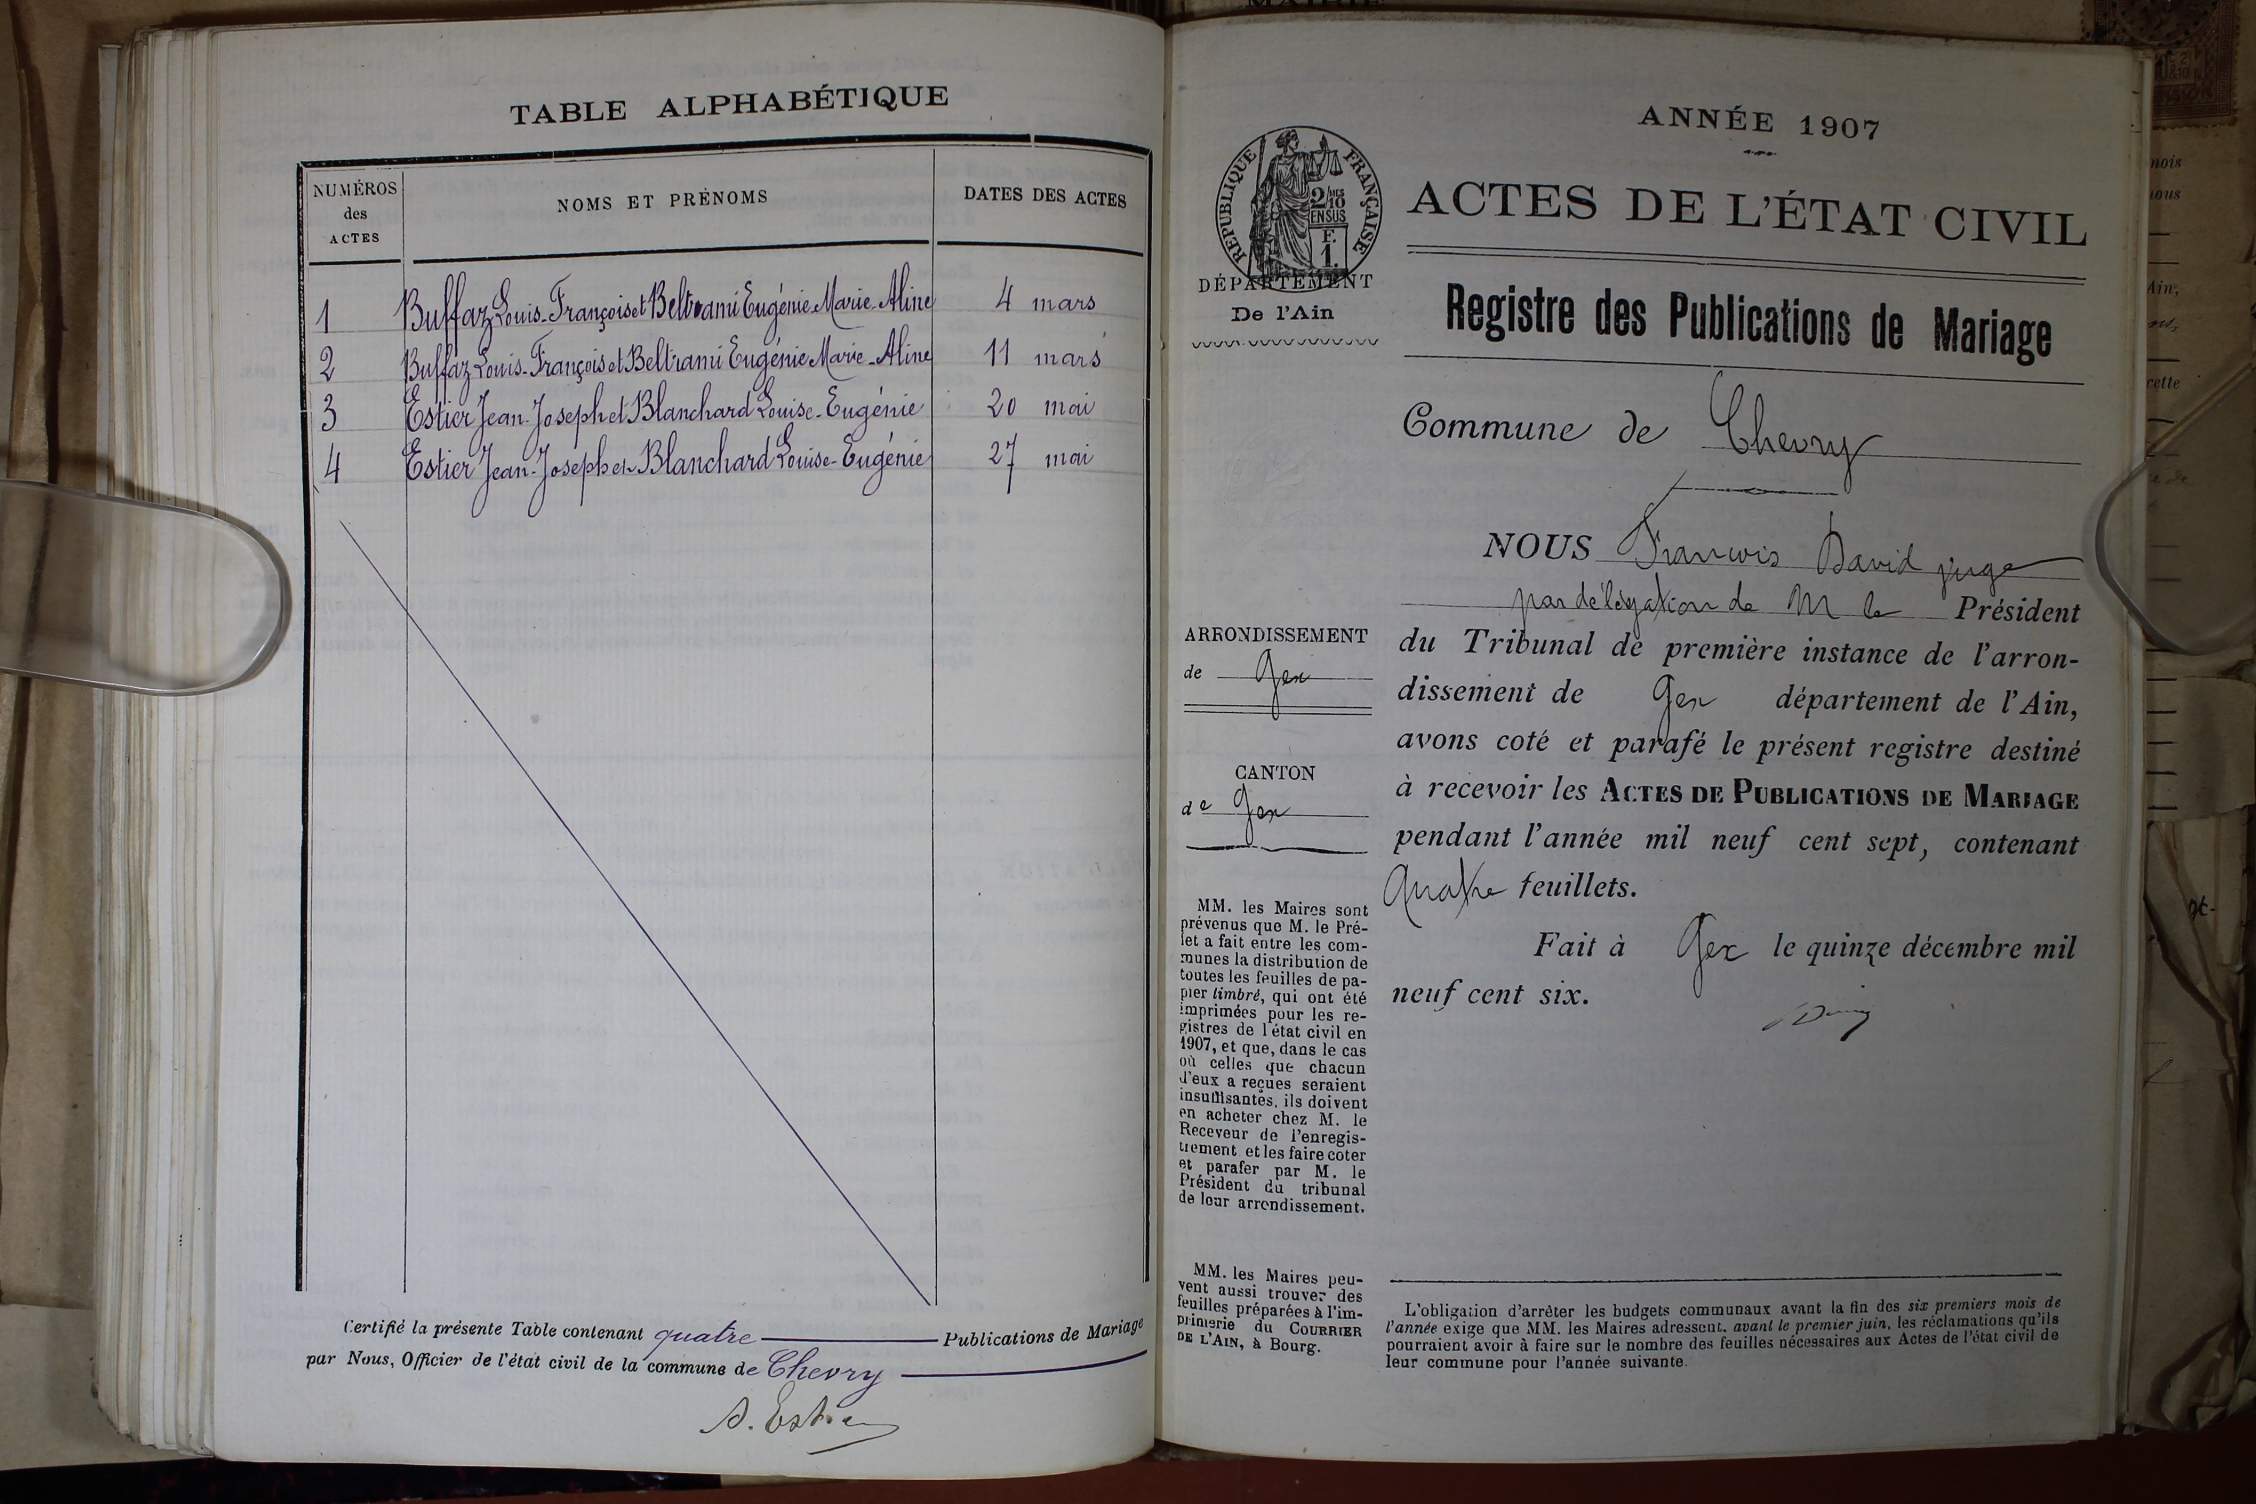 TABLE ALPHABÉTIQUE
NUMÉROS
des
ACTES
NOMS ET PRÉNOMS
DATES DES ACTES
1 Buffaz Louis-François et Beltrami Eugénie-Marie-Aline 4 mars
2 Buffaz Louis-François et Beltrami Eugénie Marie-Aline 11 mars
3 Estier Jean-Joseph et Blanchard Louise-Eugénie 20 mai
4 Estier Jean-Joseph et Blanchard Louise-Eugénie 27 mai
Certifié la présente Table contenant quatre Publications de Mariage
par Nous, Officier de l'état civil de la commune de Chevry
A. Estier
ANNÉE 1907
RÉPUBLIQUE FRANÇAISE
2/10 MES
EN SUS
F.
1.
DÉPARTEMENT
De l'Ain
ACTES DE L'ÉTAT CIVIL
Registre des Publications de Mariage
Commune de Chevry
NOUS Francois David juge
par délégation de M le Président
du Tribunal de première instance de l'arron-
dissement de Gex département de l'Ain,
avons coté et parafé le présent registre destiné
à recevoir les ACTES DE PUBLICATIONS DE MARIAGE
pendant l'année mil neuf cent sept, contenant
Quatre feuillets.
Fait à Gex le quinze décembre mil
neuf cent six.
ARRONDISSEMENT
de Gex
CANTON
de Gex
MM. les Maires sont
prévenus que M. le Pré-
fet a fait entre les com-
munes la distribution de
toutes les feuilles de pa-
pier timbré, qui ont été
imprimées pour les re-
gistres de l'état civil en
1907, et que, dans le cas
où celles que chacun
d'eux a reçues seraient
insuffisantes, ils doivent
en acheter chez M. le
Receveur de l'enregis-
trement et les faire coter
et parafer par M. le
Président du tribunal
de leur arrondissement.
MM. les Maires peu-
vent aussi trouver des
feuilles préparées à l'im-
primerie du COURRIER
DE L'AIN, à Bourg.
L'obligation d'arrêter les budgets communaux avant la fin des six premiers mois de
l'année exige que MM. les Maires adressent, avant le premier juin, les réclamations qu'ils
pourraient avoir à faire sur le nombre des feuilles nécessaires aux Actes de l'état civil de
leur commune pour l'année suivante.